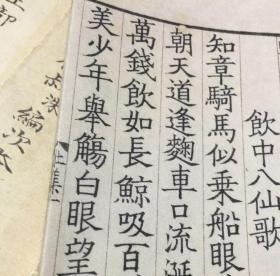 飲中八仙歌
知章騎馬似乗船眼
朝天道逢麴車口流涎
萬錢飲如長鯨吸百
美少年舉觴白眼望
杜集一
編次